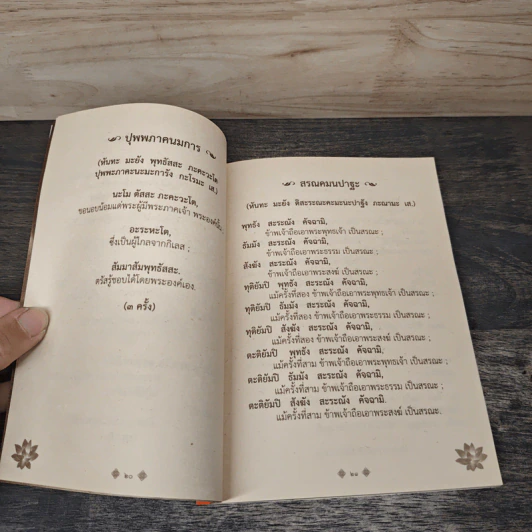 ปุพพภาคนมการ
(หันทะ มะยัง พุทธัสสะ ภะคะวะโต
ปุพพะภาคะนะมะการัง กะโรมะ เส.)
นะโม ตัสสะ ภะคะวะโต,
ขอนอบน้อมแด่พระผู้มีพระภาคเจ้า พระองค์นั้น
อะระหะโต,
ซึ่งเป็นผู้ไกลจากกิเลส ;
สัมมาสัมพุทธัสสะ.
ตรัสรู้ชอบได้โดยพระองค์เอง.
(๓ ครั้ง)
๒๐
สรณคมนปาฐะ
(หันทะ มะยัง ติสะระณะคะมะนะปาฐัง ภะณามะ เส.)
พุทธัง สะระณัง คัจฉามิ,
ข้าพเจ้าถือเอาพระพุทธเจ้า เป็นสรณะ ;
ธัมมัง สะระณัง คัจฉามิ,
ข้าพเจ้าถือเอาพระธรรม เป็นสรณะ ;
สังฆัง สะระณัง คัจฉามิ,
ข้าพเจ้าถือเอาพระสงฆ์ เป็นสรณะ ;
ทุติยัมปิ พุทธัง สะระณัง คัจฉามิ,
แม้ครั้งที่สอง ข้าพเจ้าถือเอาพระพุทธเจ้า เป็นสรณะ ;
ทุติยัมปิ ธัมมัง สะระณัง คัจฉามิ,
แม้ครั้งที่สอง ข้าพเจ้าถือเอาพระธรรม เป็นสรณะ ;
ทุติยัมปิ สังฆัง สะระณัง คัจฉามิ,
แม้ครั้งที่สอง ข้าพเจ้าถือเอาพระสงฆ์ เป็นสรณะ ;
ตะติยัมปิ พุทธัง สะระณัง คัจฉามิ,
แม้ครั้งที่สาม ข้าพเจ้าถือเอาพระพุทธเจ้า เป็นสรณะ ;
ตะติยัมปิ ธัมมัง สะระณัง คัจฉามิ,
แม้ครั้งที่สาม ข้าพเจ้าถือเอาพระธรรม เป็นสรณะ ;
ตะติยัมปิ สังฆัง สะระณัง คัจฉามิ,
แม้ครั้งที่สาม ข้าพเจ้าถือเอาพระสงฆ์ เป็นสรณะ.